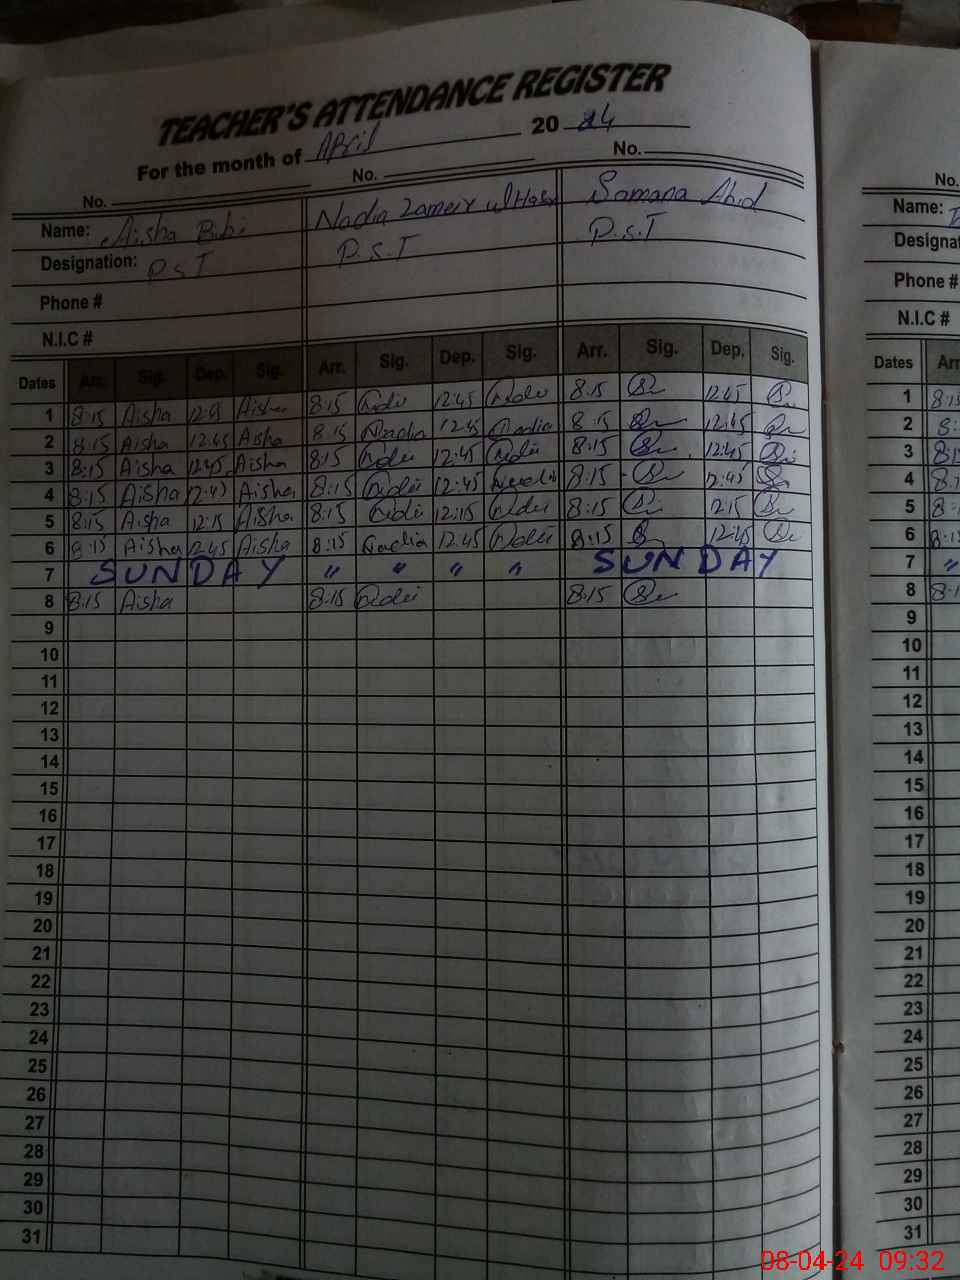 TEACHER'S ATTENDANCE REGISTER
For the month of April 20 24
No. No. No.
Name: Aisha Bibi Nadia Zameer ul Samana Abid
Designation: P.S.T P.S.T P.S.T
Phone #
N.I.C #
Dates Arr. Sig. Dep. Sig. Arr. Sig. Dep. Sig. Arr. Sig. Dep. Sig.
1 8:15 Aisha 12:45 Aisha 8:15 12:45 8:15 12:45
2 8:15 Aisha 12:45 Aisha 8:15 Nadia 12:45 Nadia 8:15 12:45
3 8:15 Aisha 12:45 Aisha 8:15 12:45 8:15 12:45
4 8:15 Aisha 12:45 Aisha 8:15 12:45 8:15 12:45
5 8:15 Aisha 12:15 Aisha 8:15 12:15 8:15 12:15
6 8:15 Aisha 12:45 Aisha 8:15 Nadia 12:45 8:15 12:45
7 SUNDAY " " " " SUNDAY
8 8:15 Aisha 8:15 8:15
9
10
11
12
13
14
15
16
17
18
19
20
21
22
23
24
25
26
27
28
29
30
31
No.
Name:
Designat
Phone #
N.I.C #
Dates Arr
1 8:15
2 8:
3 8:15
4 8:1
5 8:
6 8:15
7 "
8 8:1
9
10
11
12
13
14
15
16
17
18
19
20
21
22
23
24
25
26
27
28
29
30
31
08-04-24 09:32